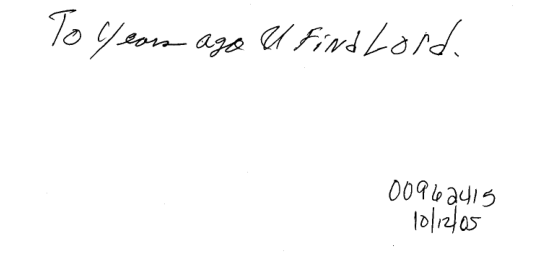 To Years ago U Find Lord.
00962415
10/12/05